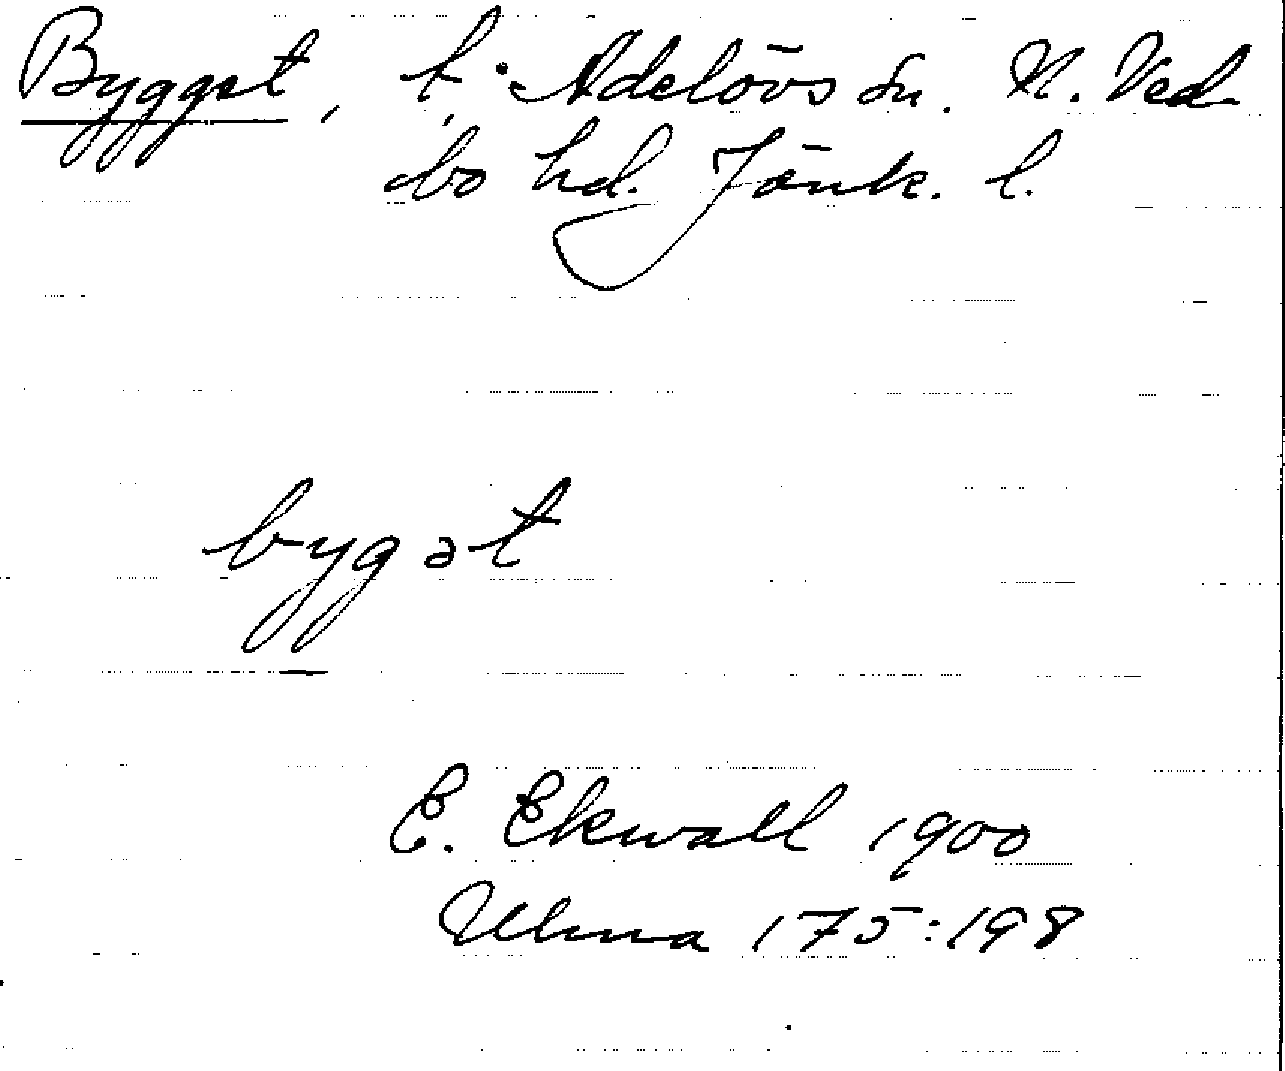 Bygget, t. Adelövs sn. N. Ved-
bo hd. Jönk. l.
bygət
E. Ekwall 1900
Ulma 175:198